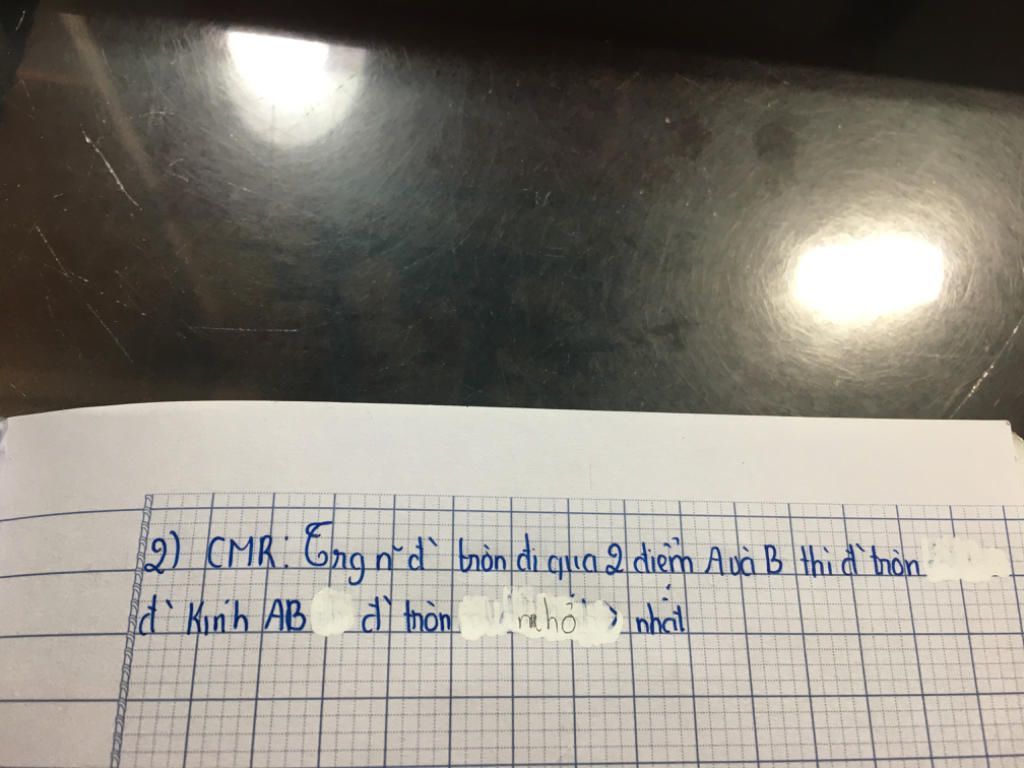 2) CMR: Trg n~ đ` tròn đi qua 2 điểm A và B thì đ` tròn
đ` Kính AB đ` tròn nhỏ nhất